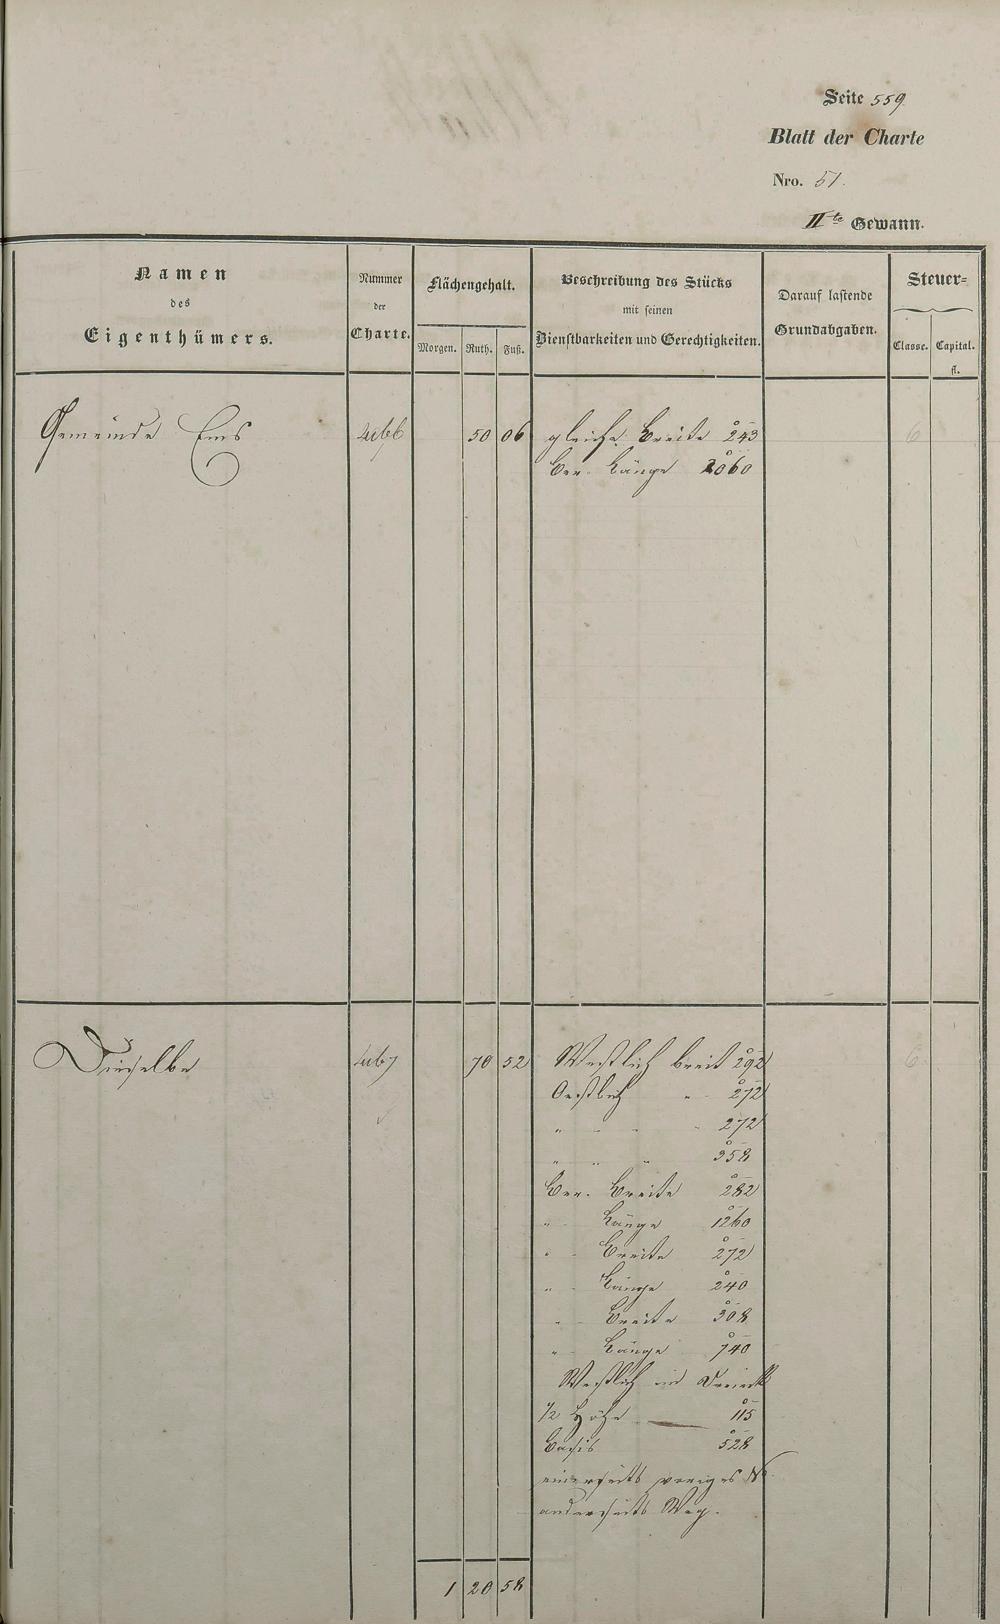 Seite 559.
Blatt der Charte
Nro. 51.
II te Gewann.
Namen
des
Eigenthümers.
Nummer
der
Charte.
Flächengehalt.
Morgen. Ruth. Fuß.
Beschreibung des Stücks
mit seinen
Dienstbarkeiten und Gerechtigkeiten.
Darauf lastende
Grundabgaben.
Steuer-
Classe. Capital.
fl.
Gemeinde Ems 4266 50 06 gleiche Breite 243 6
Ber. Länge 2060
Dieselbe 4267 70 52 Westlich breit 292 6
Oestlich " 272
" " " " 272
" " " 358
Ber. Breite 282
" Länge 1260
" Breite 272
" Länge 240
" Breite 308
" Länge 740
Westlich im Dreieck
1/2 Höhe 115
Basis 528
einerseits voriges St.
anderseits Weg.
1 20 58